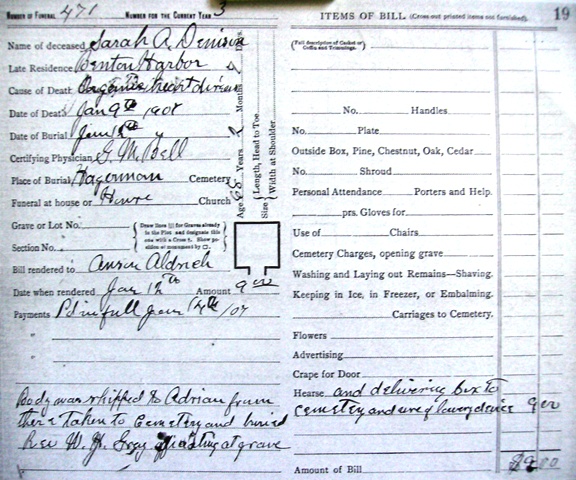 NUMBER OF FUNERAL 471 NUMBER FOR THE CURRENT YEAR 3
Name of deceased Sarah A. Denison
Late Residence Benton Harbor
Cause of Death Organic heart disease
Date of Death Jan 9th 1907
Date of Burial Jan 12th
Certifying Physician G. M. Bell
Place of Burial Hagerman Cemetery
Funeral at house or House Church
Age Years Months
Size { Length, Head to Toe
Width at Shoulder
Grave or Lot No.
Section No.
{ Draw lines ||| for Graves already in the Plot and designate this one with a Cross †. Show position of monument by □. }
Bill rendered to Anson Aldrich
Date when rendered Jan 12th Amount 9 00
Payments Pd in full Jan 14th /07
"
"
Body was shipped to Adrian from
there taken to Cemetery and buried
Rev W. H. Gray officiating at grave
ITEMS OF BILL (Cross out printed items not furnished). 19
(Full description of Casket or Coffin and Trimmings.)
No. Handles
No. Plate
Outside Box, Pine, Chestnut, Oak, Cedar
No. Shroud
Personal Attendance Porters and Help.
prs. Gloves for
Use of Chairs
Cemetery Charges, opening grave
Washing and Laying out Remains—Shaving.
Keeping in Ice, in Freezer, or Embalming.
Carriages to Cemetery.
Flowers
Advertising
Crape for Door
Hearse and delivering box to
cemetery and use of lowering device 9 00
Amount of Bill $9.00